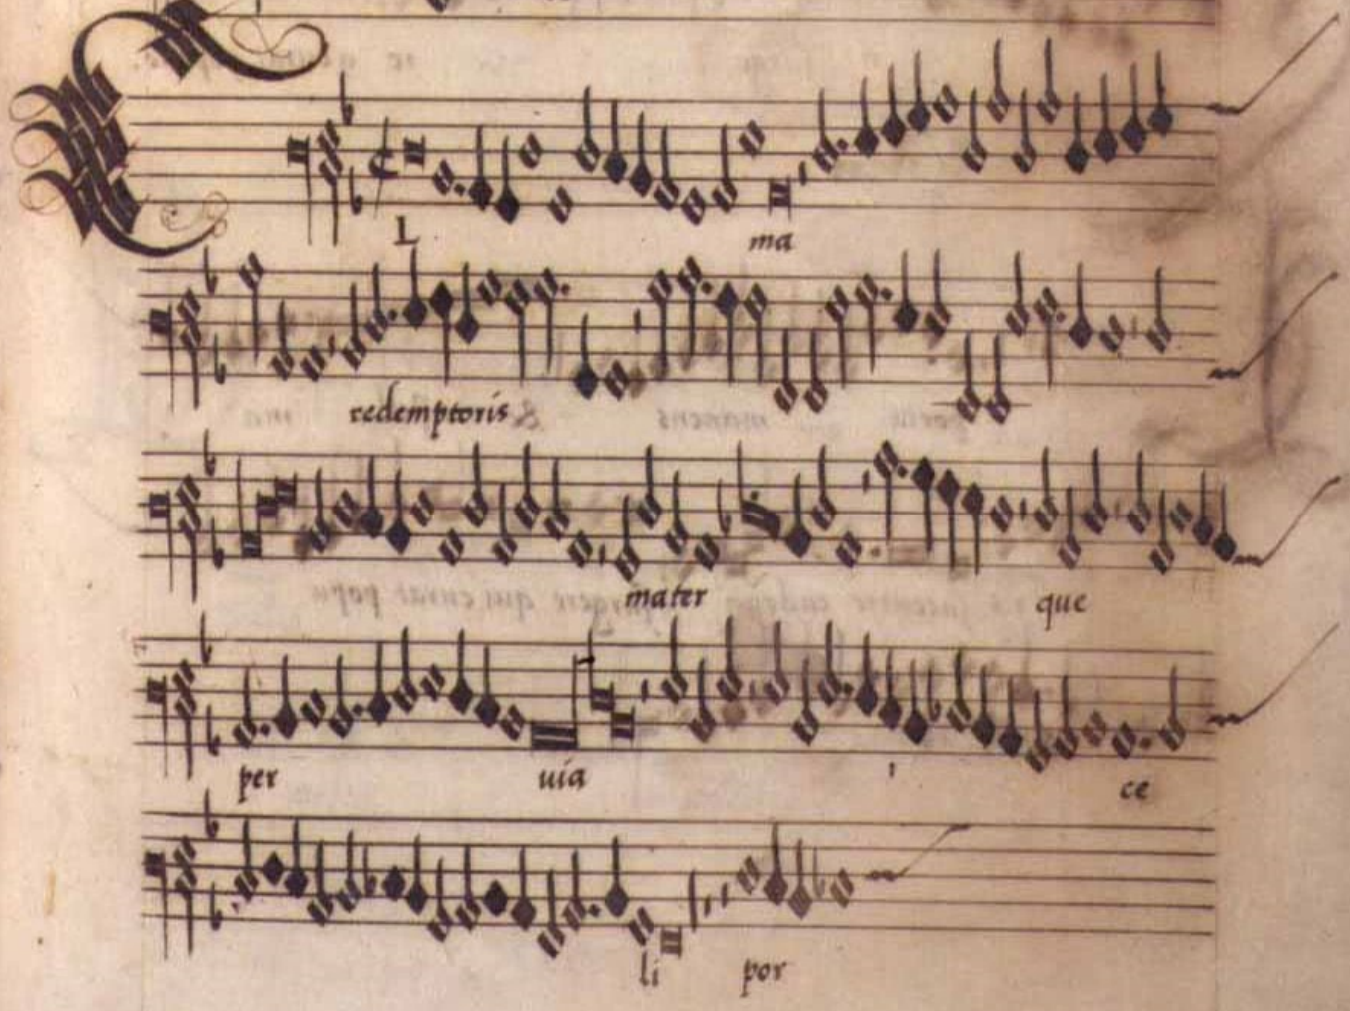 AL ma
redemptoris
mater que
per uia ce
li por